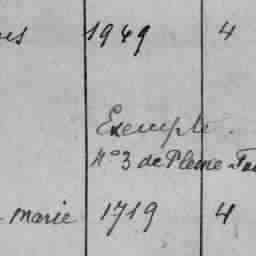 1949 4
Exemple.
N° 3 de Pleine
Marie 1719 4